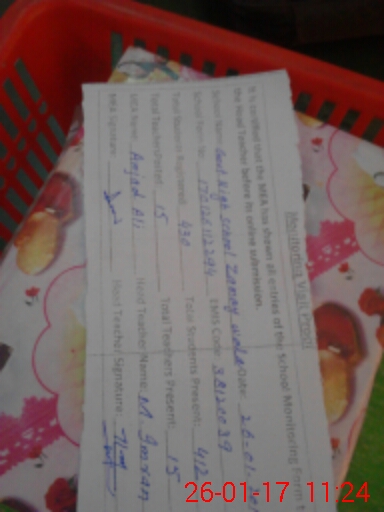 Monitoring Visit Proof
It is certified that the MEA has shown all entries of the School Monitoring Form t
the Head Teacher before its online submission.
School Name: Govt High School Zamay wala Date: 26.01.
School Sem. No: EMIS Code: 38120039
Total Students Registered: 430 Total Students Present: 412
Total Teacher Posted: 15 Total Teachers Present: 15
MEA Name: Amjad Ali Head Teacher Name: M. Imran
MEA Signature: Head Teacher Signature:
26-01-17 11:24